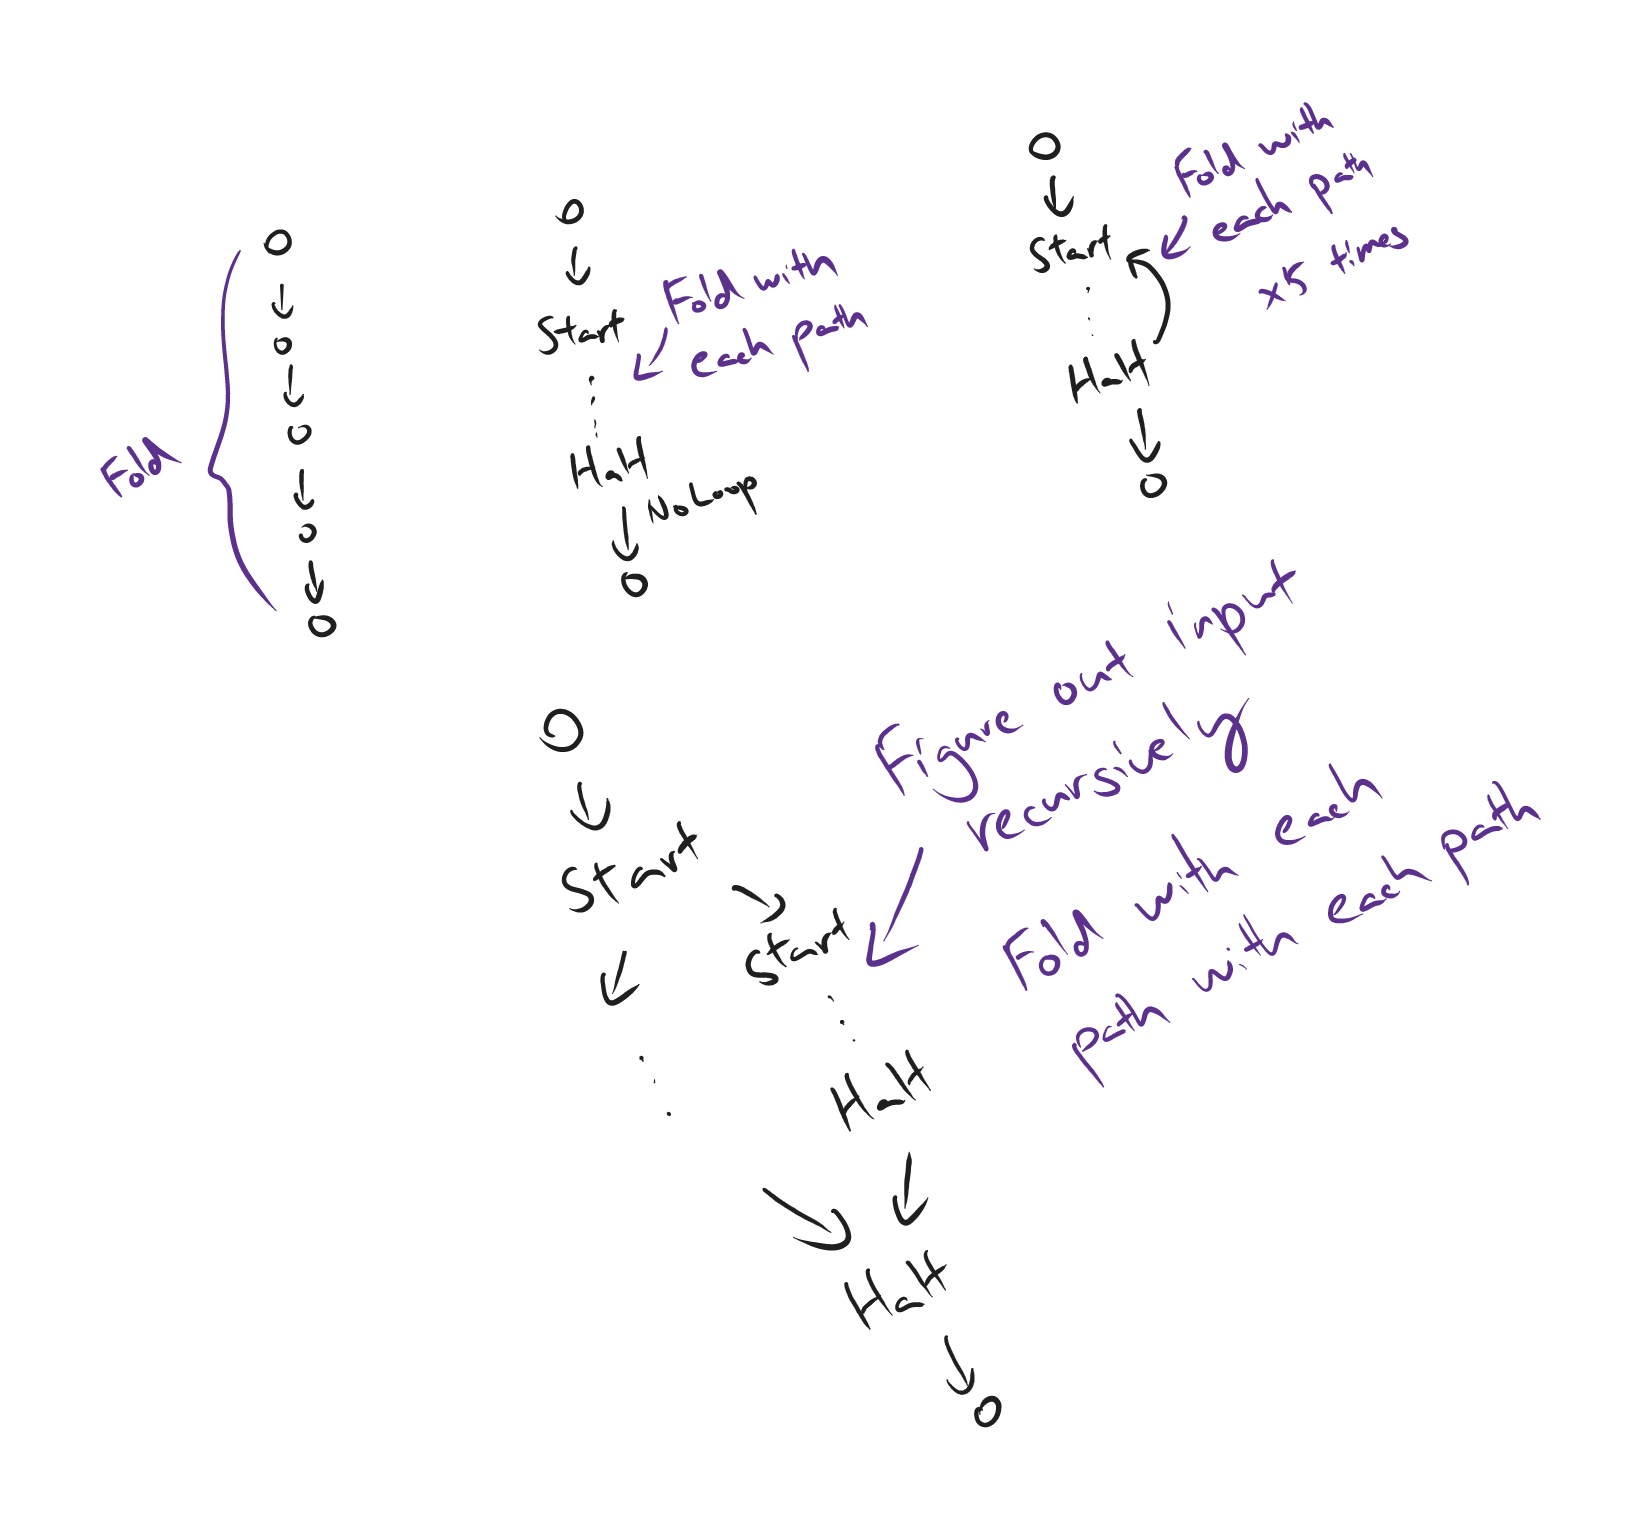 Fold
Start
Fold with
each path
Halt
No Loop
Start
Fold with
each path
x5 times
Halt
Start
Start
Figure out input
recursively
Fold with each
path with each path
Halt
Halt